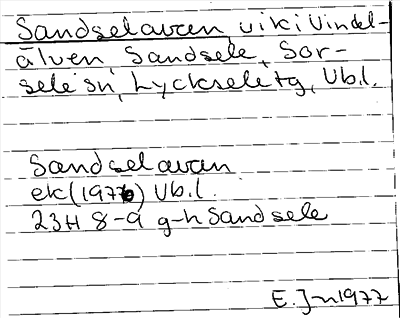 Sandselavan, vik i Vindel-
älven, Sandsele, Sor-
sele sn, Lycksele tg, Vb.l.
Sandselavan
ek (1976) Vb.l.
23H 8-9 g-h Sandsele
E. Jn 1977